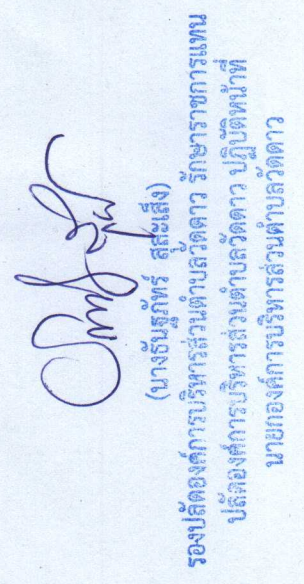 (นางธันฐภัทร์ สุสะเส็ง)
รองปลัดองค์การบริหารส่วนตำบลวัดดาว รักษาราชการแทน
ปลัดองค์การบริหารส่วนตำบลวัดดาว ปฏิบัติหน้าที่
นายกองค์การบริหารส่วนตำบลวัดดาว